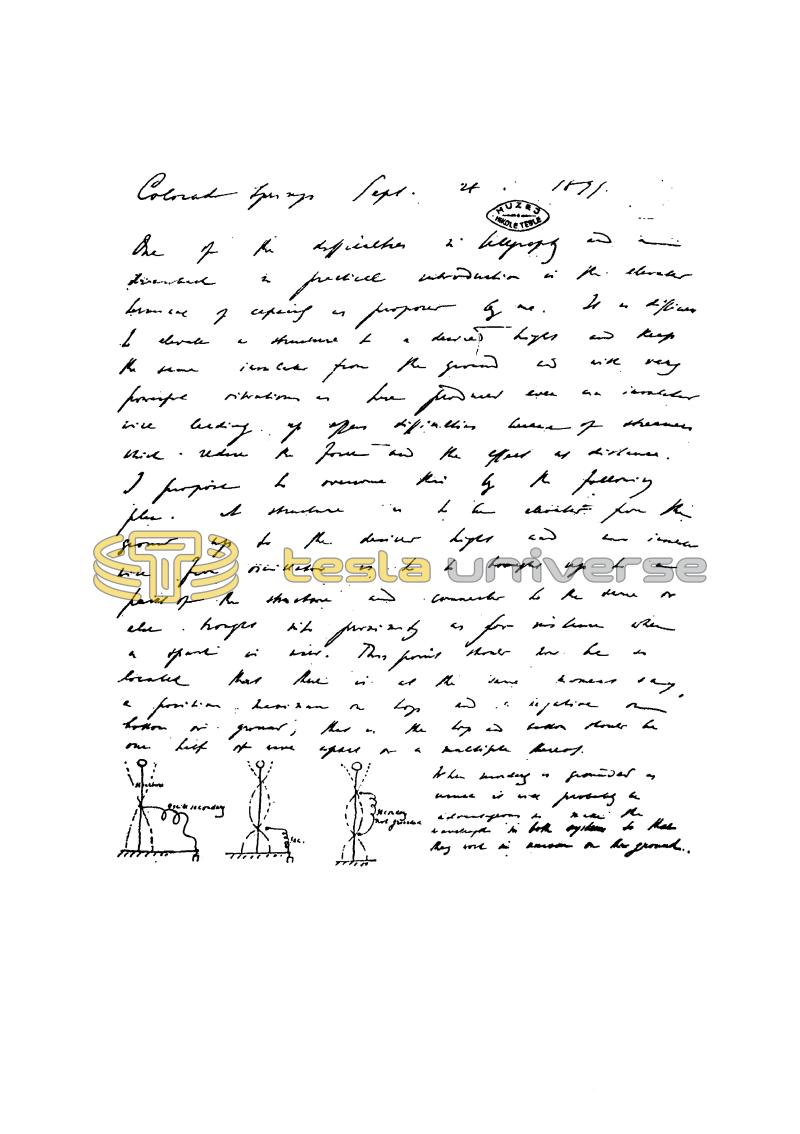 Colorado Springs Sept. 24. 1899.
MUZEJ
NIKOLE TESLE
One of the difficulties in telegraphy and
in practical introduction is the elevated
terminal of capacity as proposed by me. It is difficult
to elevate a structure to a desired height and keep
the same insulated from the ground and with very
powerful vibrations as here produced even an insulated
wire leading up offers difficulties because of streamers
which reduce the force and the effect at distance.
I propose to overcome this by the following
plan. A structure is to be elevated from the
ground up to the desired height and an insulated
wire from oscillator is to be brought up to a
point of the structure and connected to the same or
else brought into proximity as for instance when
a spark is used. This point should now be so
located that there is at the same moment say,
a positive maximum on top and a negative on
bottom or ground; that is the top and bottom should be
one half of wave apart or a multiple thereof.
tesla universe
secondary
sec.
secondary
not grounded
When secondary is grounded as
usual it will probably be
advantageous to make the
wavelength in both systems so that
they work in unison on the ground.